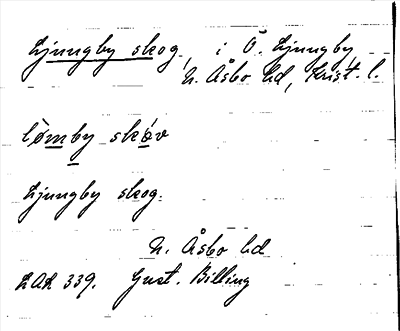 Ljungby skog, i Ö. Ljungby
N. Åsbo hd, Krist. l.
lòmby skóv
Ljungby skog.
N. Åsbo hd
LAL 339. Gust. Billing